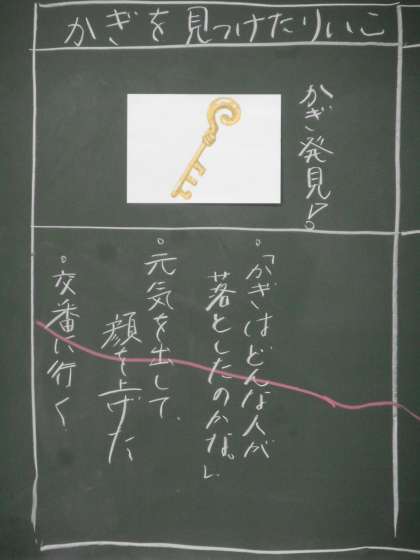 かぎを見つけたりいこ
かぎ発見!?
。「かぎはどんな人が
落としたのかな。」
。元気を出して、
顔を上げた
。交番に行く